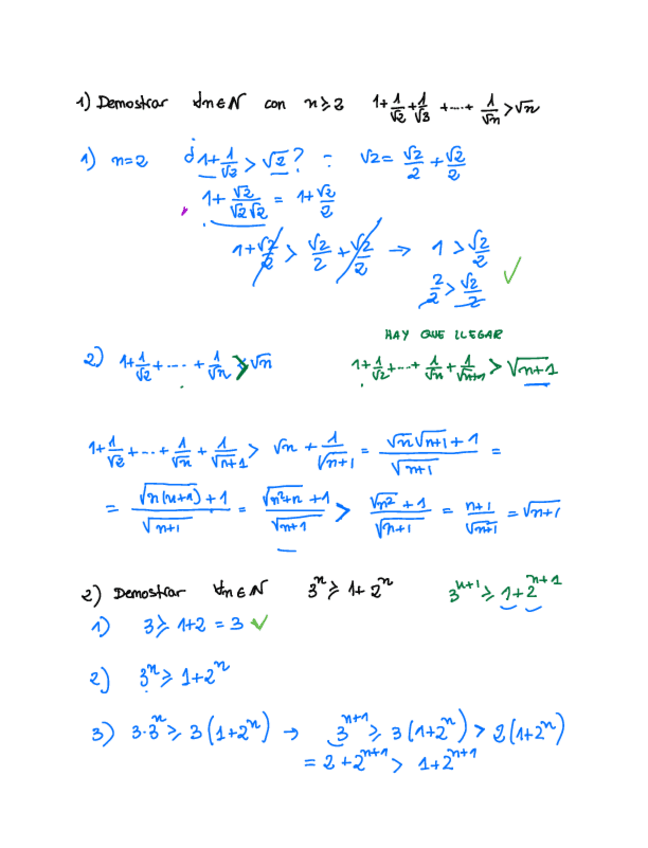 1) Demostrar ∀n∈N con n⩾2 1+1/√2+1/√3+....+1/√n>√n
1) n=2 ¿1+1/√2>√2? : √2=√2/2+√2/2
1+√2/(√2√2)=1+√2/2
1+√2/2>√2/2+√2/2 → 1>√2/2
2/2>√2/2 ✓
HAY QUE LLEGAR
2) 1+1/√2+....+1/√n>√n 1+1/√2+...+1/√n+1/√(n+1)>√(n+1)
1+1/√2+...+1/√n+1/√(n+1)>√n+1/√(n+1)=(√n√(n+1)+1)/√(n+1)=
=(√(n(n+1))+1)/√(n+1)=(√(n²+n)+1)/√(n+1)>(√(n²)+1)/√(n+1)=(n+1)/√(n+1)=√(n+1)
2) Demostrar ∀n∈N 3ⁿ⩾1+2ⁿ 3ⁿ⁺¹⩾1+2ⁿ⁺¹
1) 3⩾1+2=3 ✓
2) 3ⁿ⩾1+2ⁿ
3) 3·3ⁿ⩾3(1+2ⁿ) → 3ⁿ⁺¹⩾3(1+2ⁿ)>2(1+2ⁿ)
=2+2ⁿ⁺¹>1+2ⁿ⁺¹